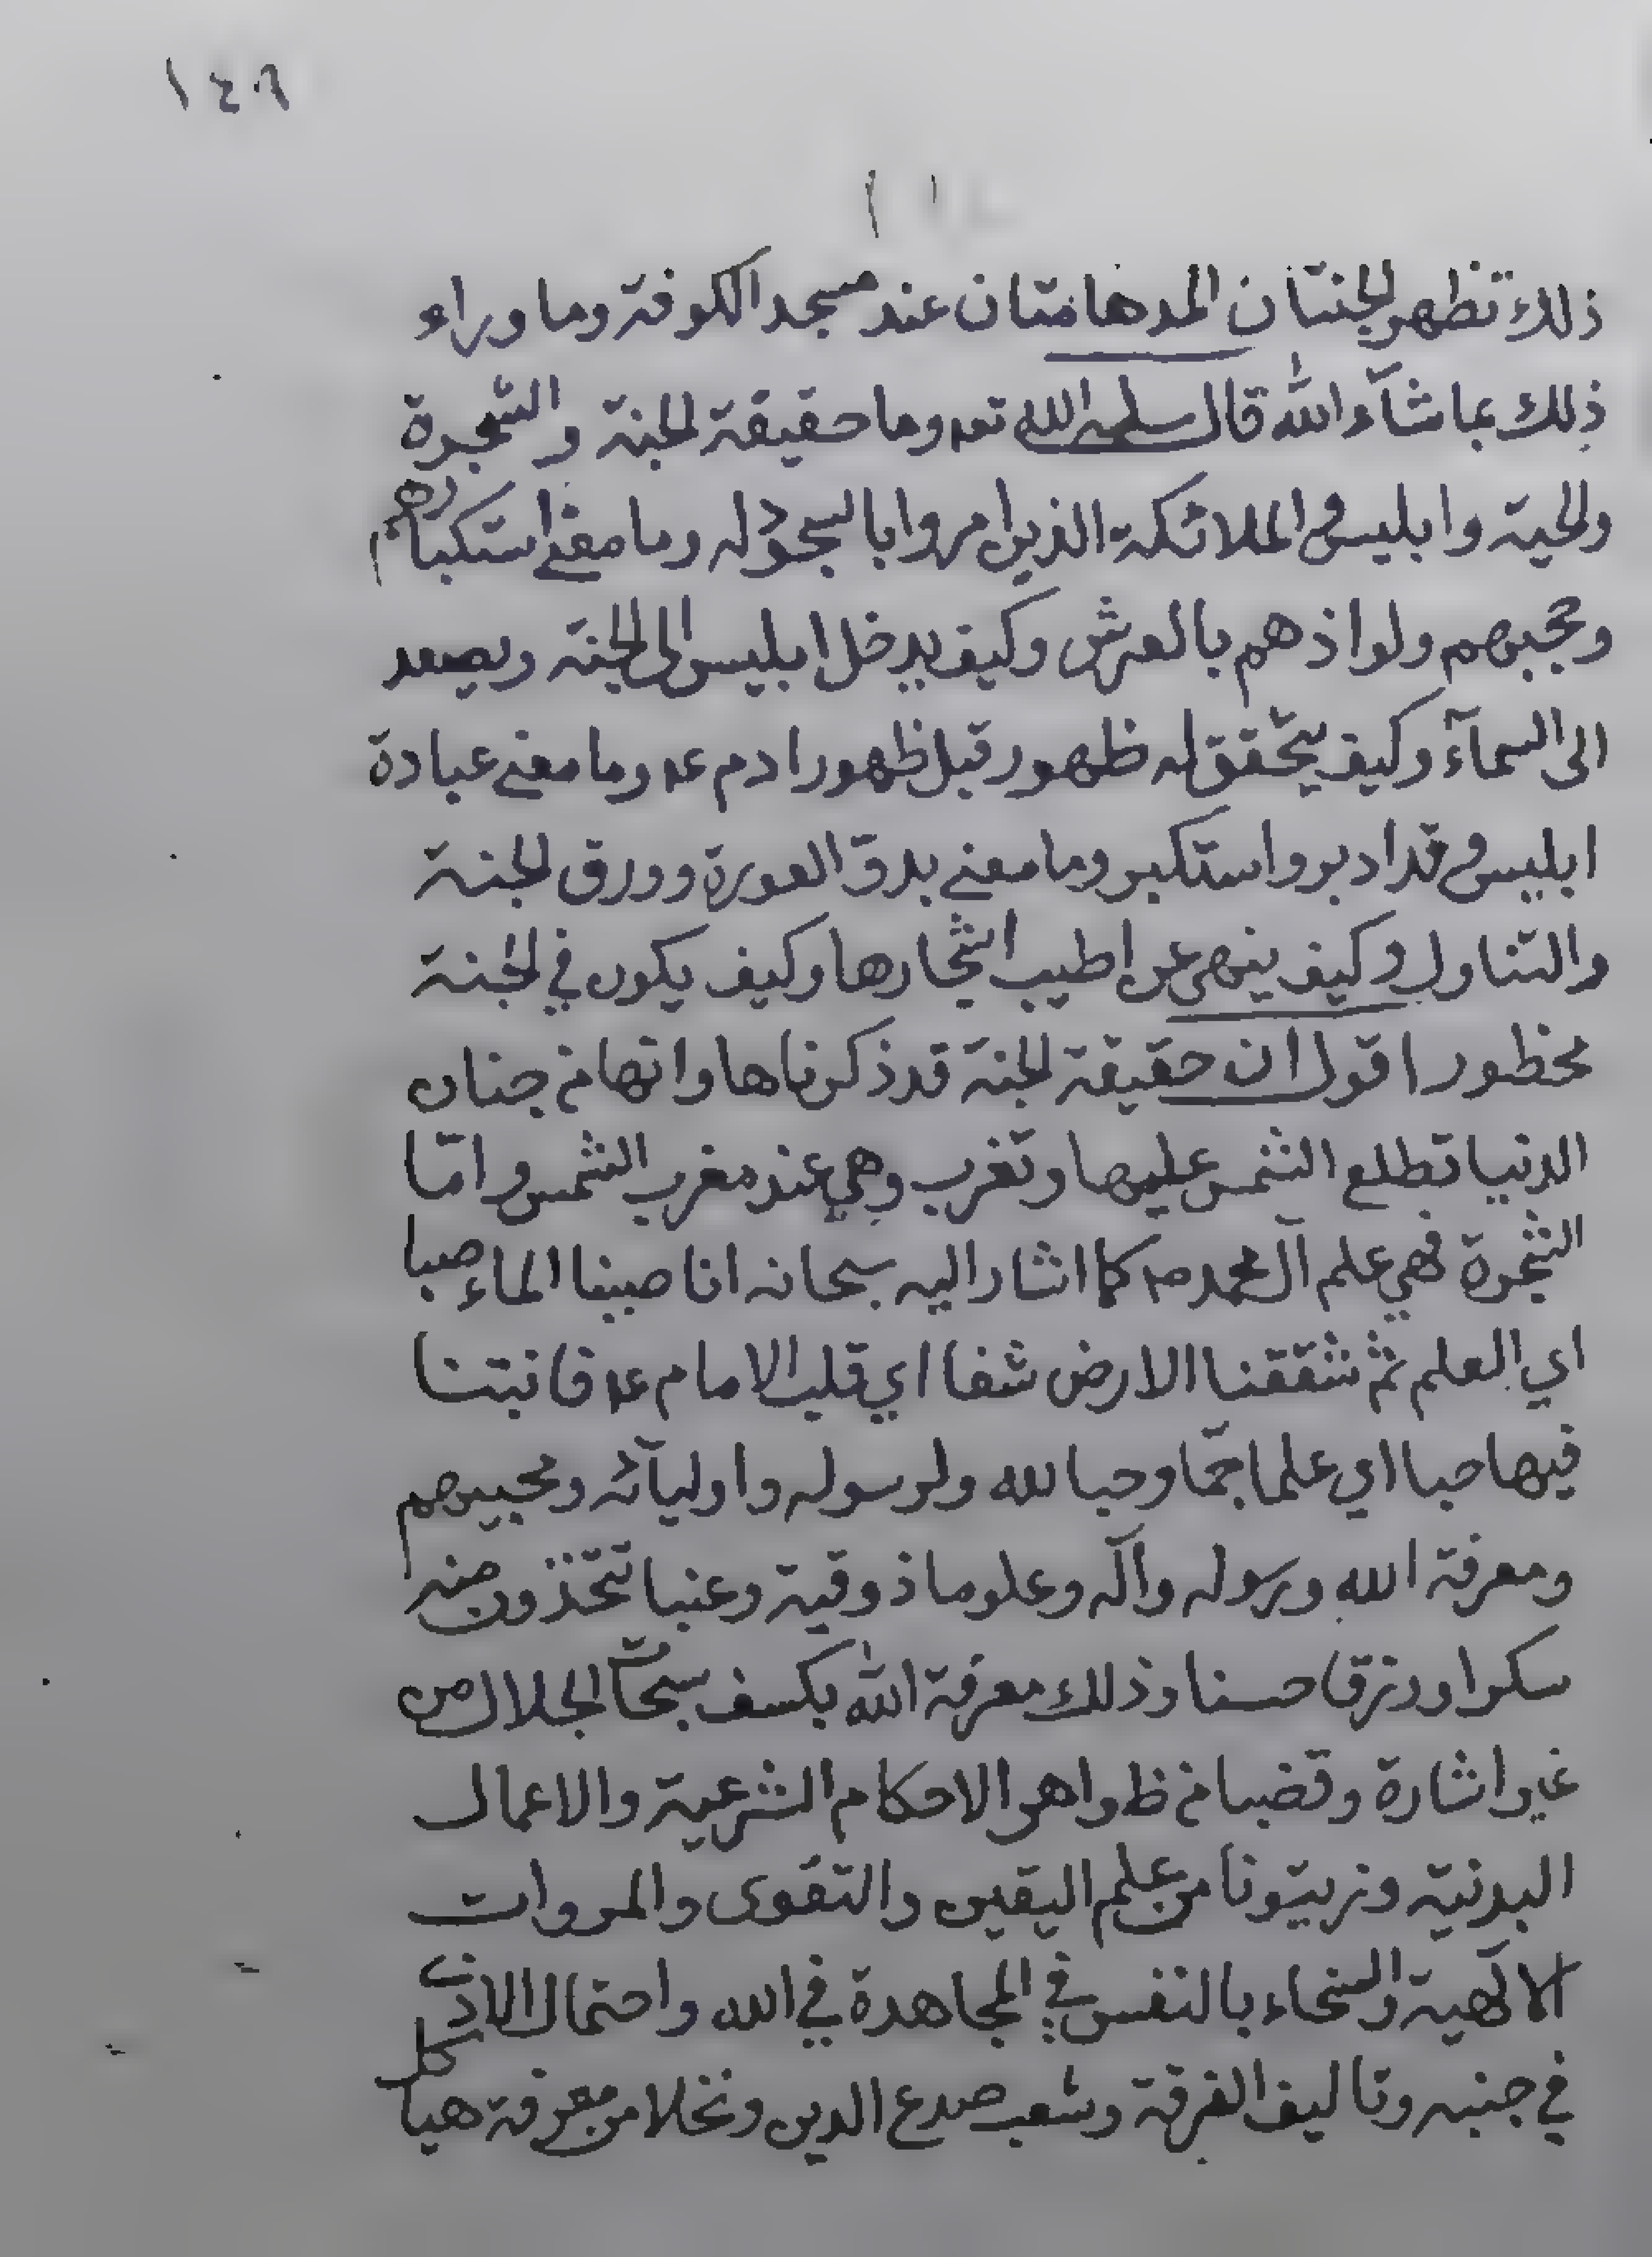 ١٤٩
ذلك تظهر الجنتان المدهامتان عند مسجد الكوفة وما وراء
ذلك بما شآء الله قال سلمه الله تعه وما حقيقة الجنة والشجرة
والحية وابليس في الملائكة الذين امروا بالسجود له وما معنى استكبارهم
وحجبهم ولواذهم بالعرش وكيف يدخل ابليس الى الجنة ويصعد
الى السمآء وكيف يتحقق له ظهور قبل ظهور ادم عه وما معنى عبادة
ابليس وقد ادبر واستكبر وما معنى بدوّ العورة وورق الجنة
والتناول وكيف ينهى عن اطيب اشجارها وكيف يكون في الجنة
محظور اقول ان حقيقة الجنة قد ذكرناها وانها من جنان
الدنيا تطلع الشمس عليها وتغرب وهي عند مغرب الشمس وامّا
الشجرة فهي علم آل محمد ص كما اشار اليه سبحانه انا صببنا الماء صبا
اي العلم ثم شققنا الارض شقا اي قلب الامام عه فانبتنا
فيها حبا اي علما جمّا وحبا لله ولرسوله واوليآئه ومحبيهم
ومعرفة الله ورسوله وآله وعلوما ذوقية وعنبا تتخذون منه
سكرا ورزقا حسنا وذلك معرفة الله بكشف سبحآت الجلال من
غير اشارة وقضبا من ظواهر الاحكام الشرعية والاعمال
البدنية وزيتونا من علم اليقين والتقوى والمروات
الالهية والسخاء بالنفس في المجاهدة في الله واحتمال الاذى
في جنبه وتاليف الفرقة وشعب صدع الدين ونخلا من معرفة هياكل